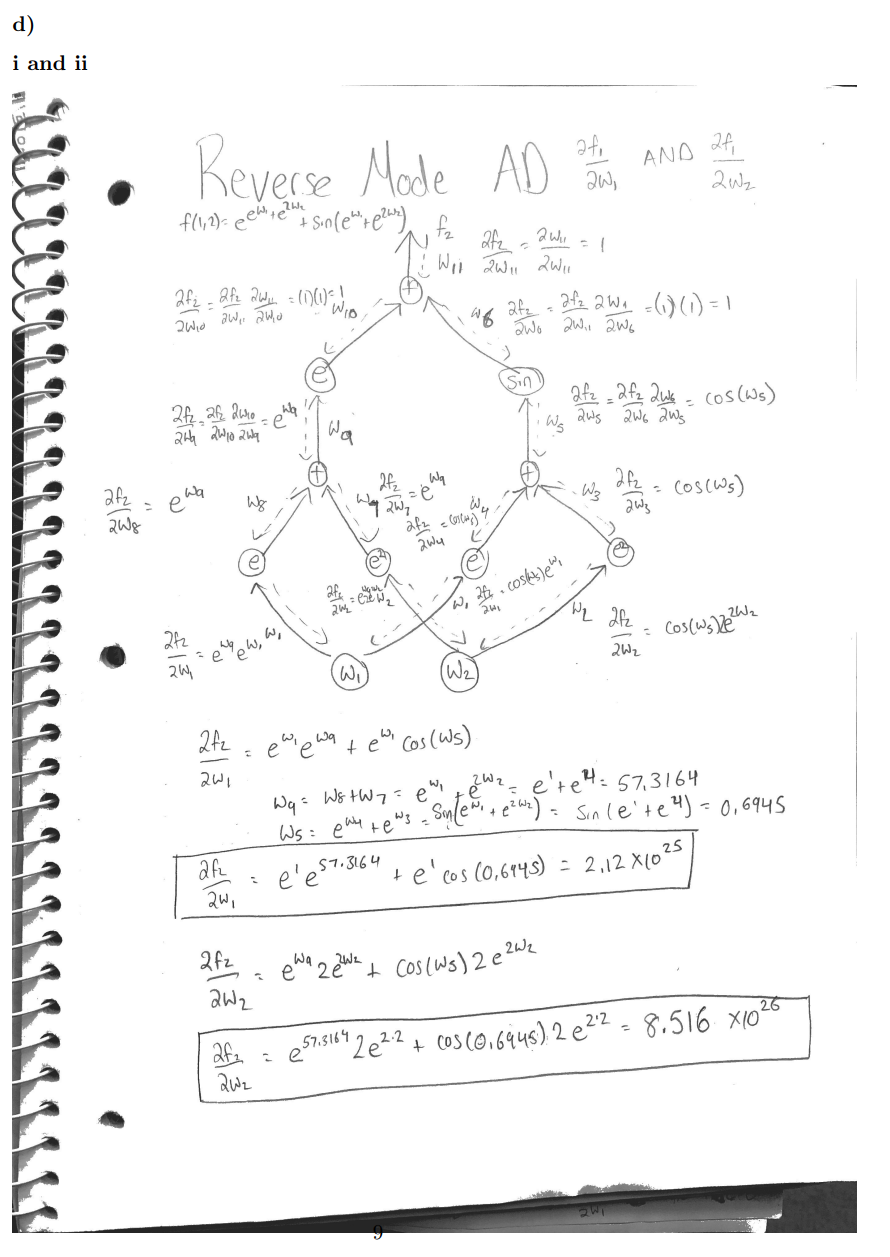 d)
i and ii
Reverse Mode AD ∂f₁/∂w₁ AND ∂f₁/∂w₂
f(1,2) = e^(e^(w₁)+e^(2w₂)) + sin(e^(w₁)+e^(2w₂))
f₂
w₁₁ ∂f₂/∂w₁₁ = ∂w₁₁/∂w₁₁ = 1
+
∂f₂/∂w₁₀ = ∂f₂/∂w₁₁ ∂w₁₁/∂w₁₀ = (1)(1) = 1 w₁₀
w₆ ∂f₂/∂w₆ = ∂f₂/∂w₁₁ ∂w₁₁/∂w₆ = (1)(1) = 1
e sin
∂f₂/∂w₉ = ∂f₂/∂w₁₀ ∂w₁₀/∂w₉ = e^(w₉) w₉
w₅ ∂f₂/∂w₅ = ∂f₂/∂w₆ ∂w₆/∂w₅ = cos(w₅)
+ +
∂f₂/∂w₈ = e^(w₉) w₈
∂f₂/∂w₇ = e^(w₉)
∂f₂/∂w₄ = cos(w₅) w₄
w₃ ∂f₂/∂w₃ = cos(w₅)
e e² e e²
∂f₂/∂w₁ = e^(w₉) e^(w₁) w₁
w₂
w₁ ∂f₂/∂w₁ = cos(w₅)e^(w₁)
w₂ ∂f₂/∂w₂ = cos(w₅)2e^(2w₂)
w₁ w₂
∂f₂/∂w₁ = e^(w₁) e^(w₉) + e^(w₁) cos(w₅)
w₉ = w₈ + w₇ = e^(w₁) + e^(2w₂) = e¹ + e⁴ = 57.3164
w₅ = e^(w₄) + e^(w₃) = Sin(e^(w₁) + e^(2w₂)) = Sin(e¹ + e⁴) = 0.6945
∂f₂/∂w₁ = e¹ e^(57.3164) + e¹ cos(0.6945) = 2.12 × 10²⁵
∂f₂/∂w₂ = e^(w₉) 2e^(2w₂) + cos(w₅) 2e^(2w₂)
∂f₂/∂w₂ = e^(57.3164) 2e^(2·2) + cos(0.6945) 2e^(2·2) = 8.516 × 10²⁶
∂w₁
9